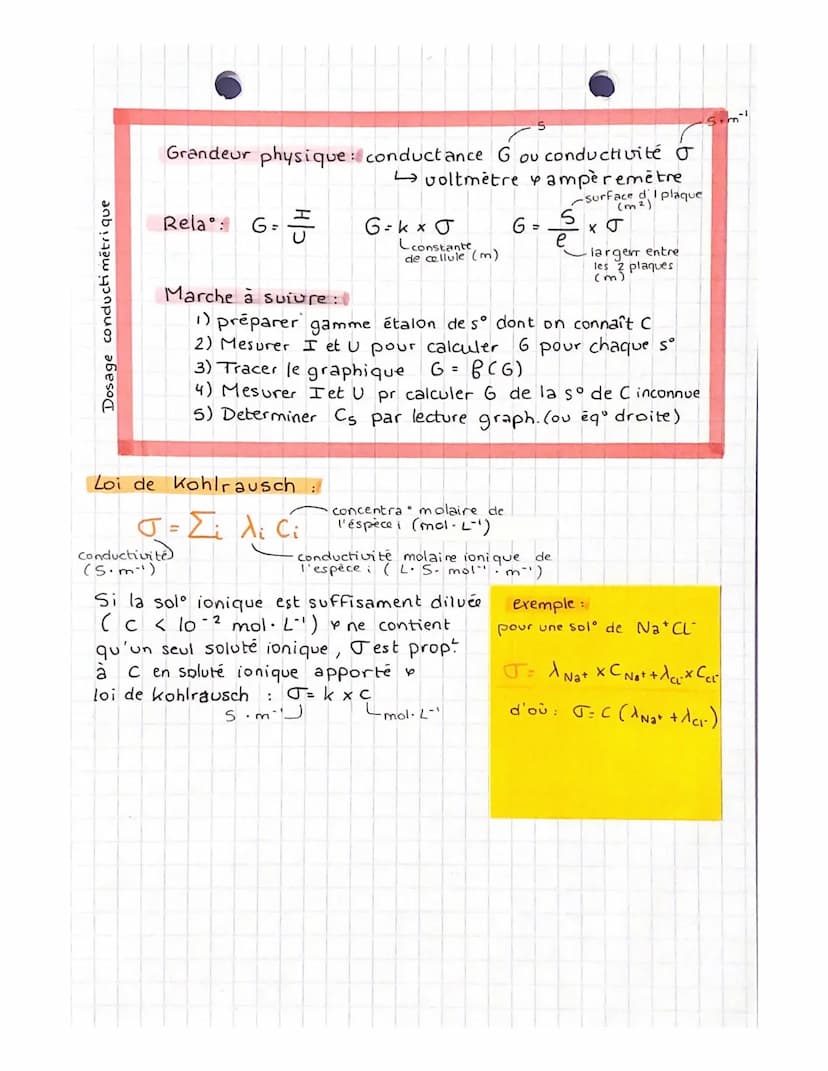 Dosage conductimétrique
S
S·m⁻¹
Grandeur physique : conductance G ou conductivité σ
↳ voltmètre & ampèremètre
surface d'1 plaque
(m²)
Rela°: G = I/U G = k x σ G = S/e x σ
constante
de cellule (m)
largeur entre
les 2 plaques
(m)
Marche à suivre :
1) préparer gamme étalon de s° dont on connaît C
2) Mesurer I et U pour calculer G pour chaque s°
3) Tracer le graphique G = β(G)
4) Mesurer I et U pr calculer G de la s° de C inconnue
5) Determiner Cs par lecture graph. (ou éq° droite)
Loi de Kohlrausch :
σ = Σi λi Ci
concentra° molaire de
l'éspèce i (mol·L⁻¹)
conductivité
(S·m⁻¹)
conductivité molaire ionique de
l'espèce i (L·S·mol⁻¹·m⁻¹)
Si la sol° ionique est suffisament diluée
(c < 10⁻² mol·L⁻¹) & ne contient
qu'un seul soluté ionique, σ est propt.
à C en soluté ionique apporté &
loi de kohlrausch : σ = k x c
S·m⁻¹
mol·L⁻¹
exemple :
pour une sol° de Na⁺CL⁻
σ = λNa⁺ x CNa⁺ + λCl⁻ x CCl⁻
d'où : σ = C (λNa⁺ + λCl⁻)